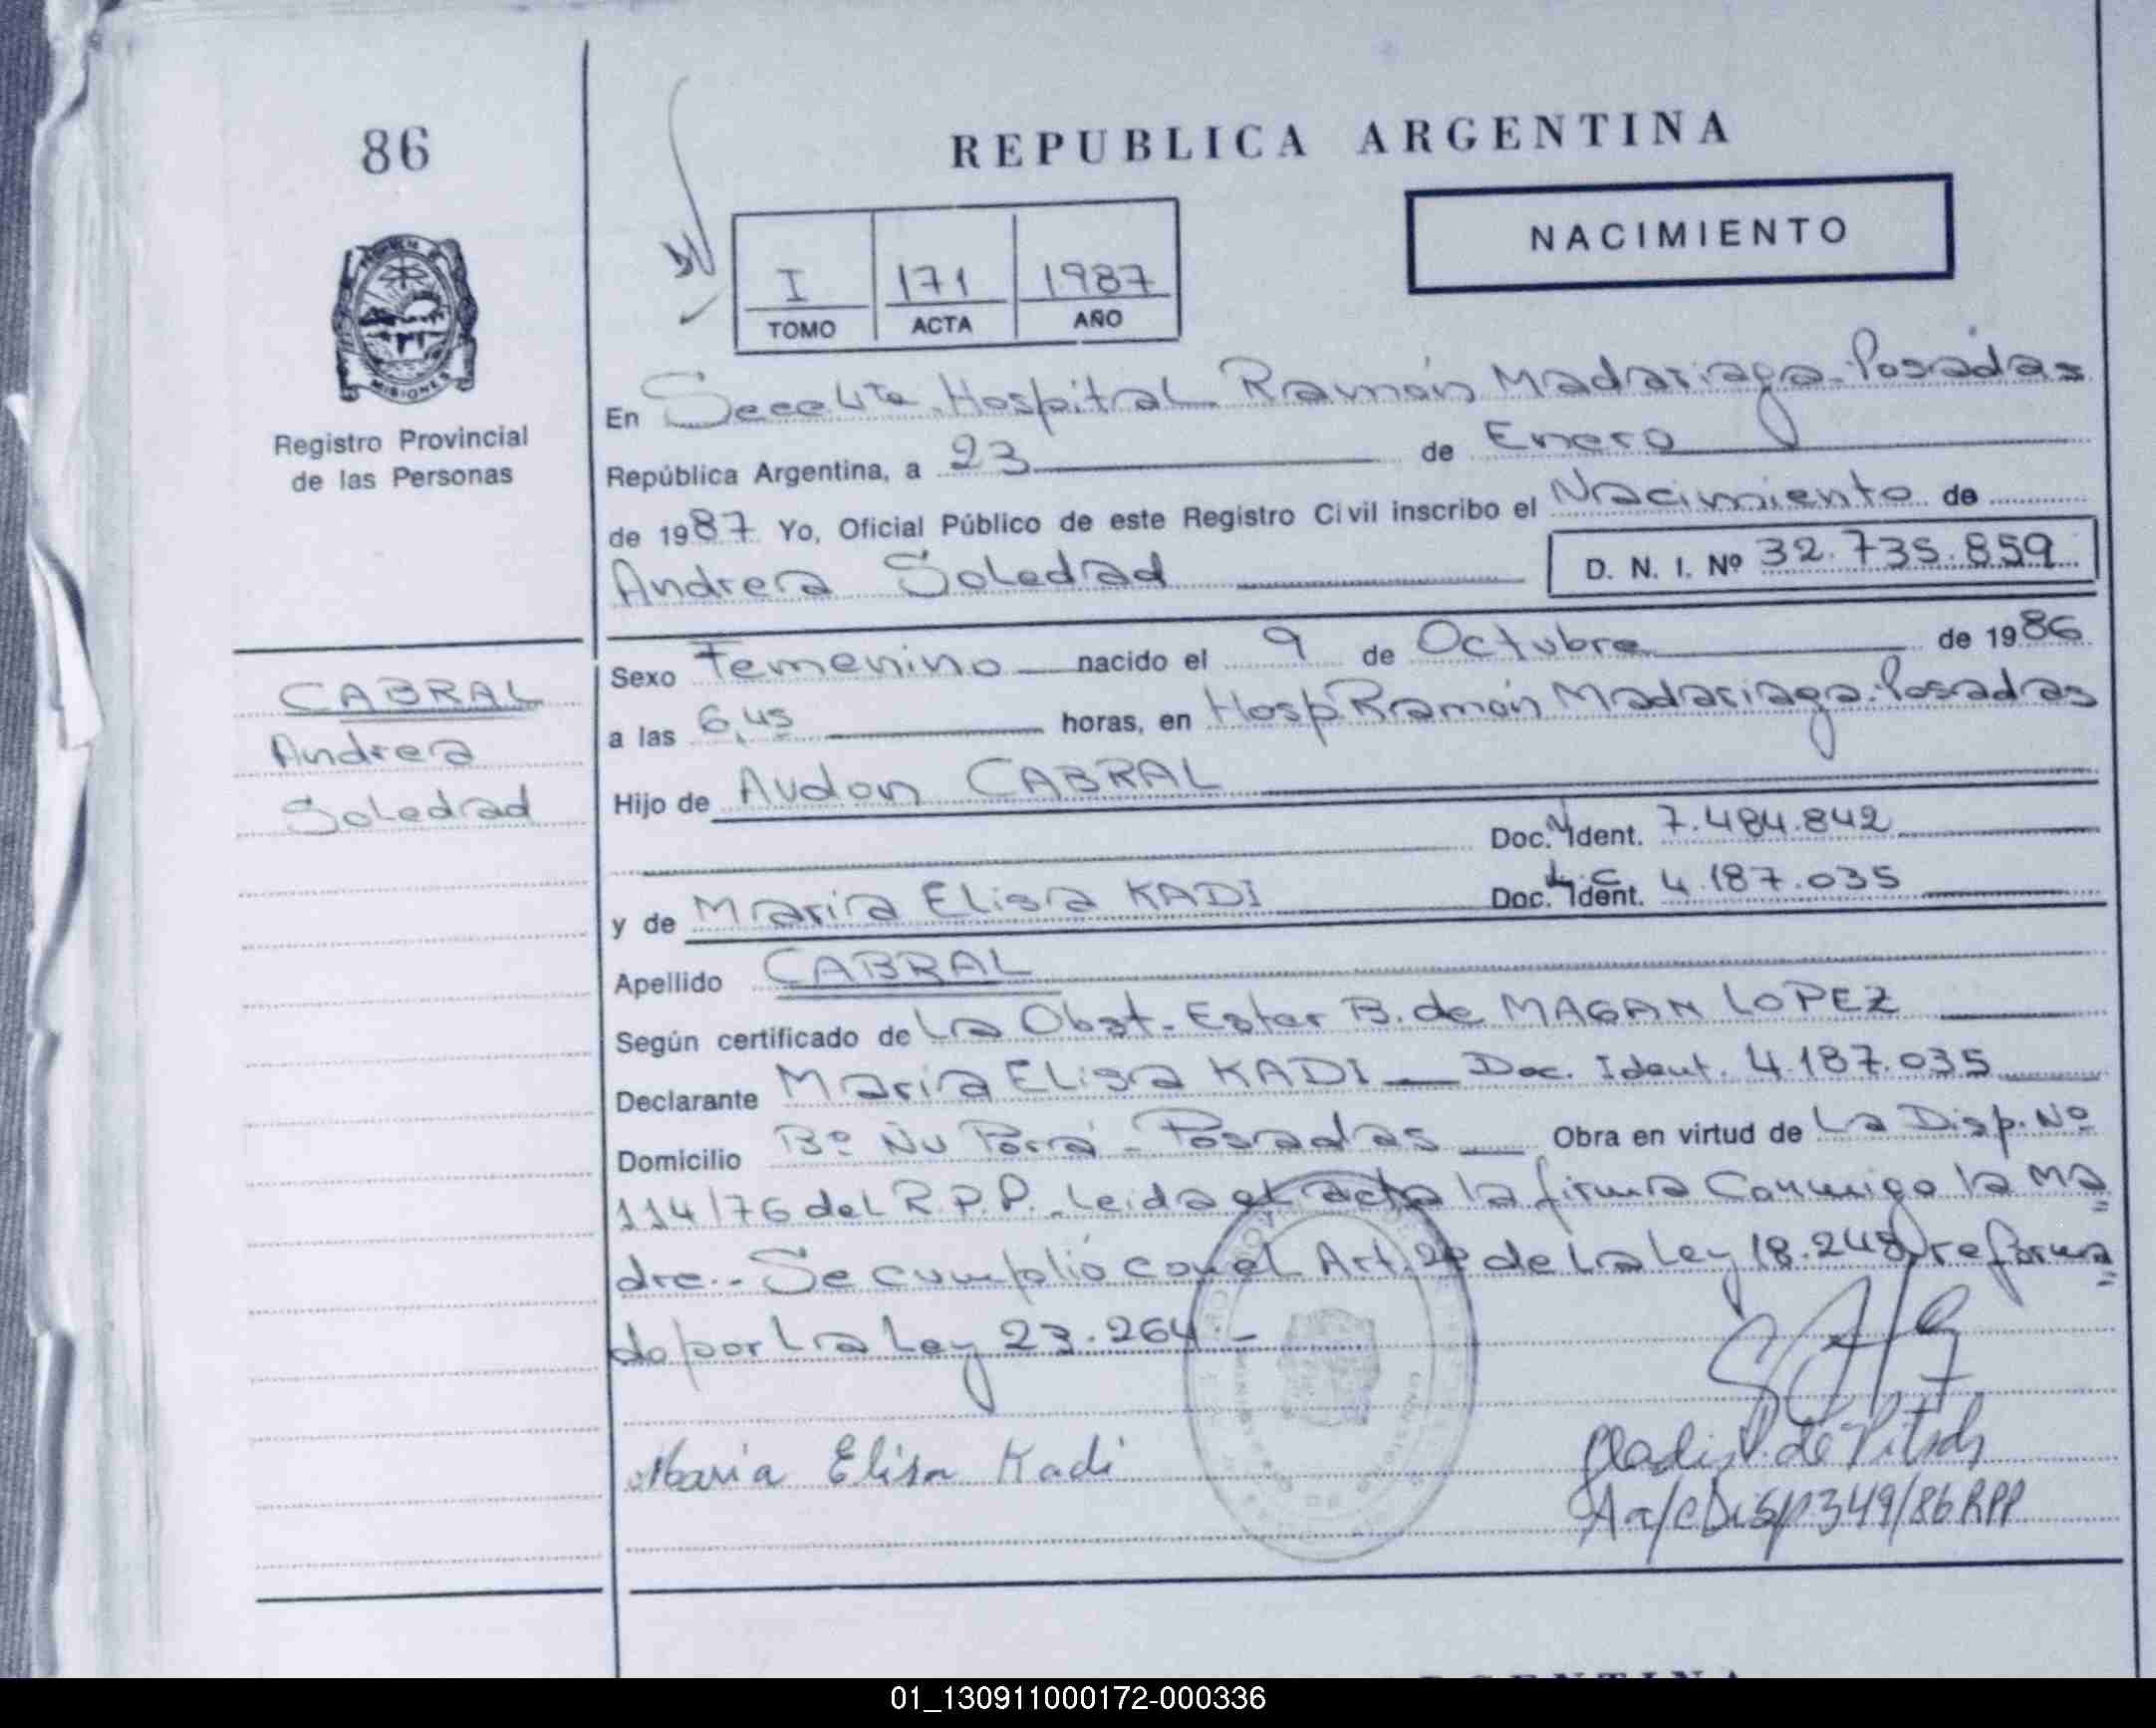 86
REPUBLICA ARGENTINA
NACIMIENTO
I 171 1987
TOMO ACTA AÑO
MISIONES
Registro Provincial
de las Personas
En Secc 4ta Hospital Ramón Madariaga-Posadas
República Argentina, a 23 de Enero
de 1987 Yo, Oficial Público de este Registro Civil inscribo el Nacimiento de
Andrea Soledad D. N. I. Nº 32.735.859
CABRAL
Andrea
Soledad
Sexo Femenino nacido el 9 de Octubre de 1986
a las 6,45 horas, en Hosp Ramón Madariaga-Posadas
Hijo de Audon CABRAL
Doc. Ident. 7.484.842
y de Maria Elisa KADI Doc. L.C. Ident. 4.187.035
Apellido CABRAL
Según certificado de La Obst. Ester B. de MAGAN LOPEZ
Declarante Maria Elisa KADI Doc. Ident. 4.187.035
Domicilio Bº Ñu Porrá - Posadas Obra en virtud de La Disp. Nº
114/76 del R.P.P. Leida el acta la firma Conmigo la ma
dre.- Se cumplió con el Art. 2º de La Ley 18.248, reforma
do por La Ley 23.264.-
Maria Elisa Kadi
A a/c Disp 349/86 RPP
01_130911000172-000336